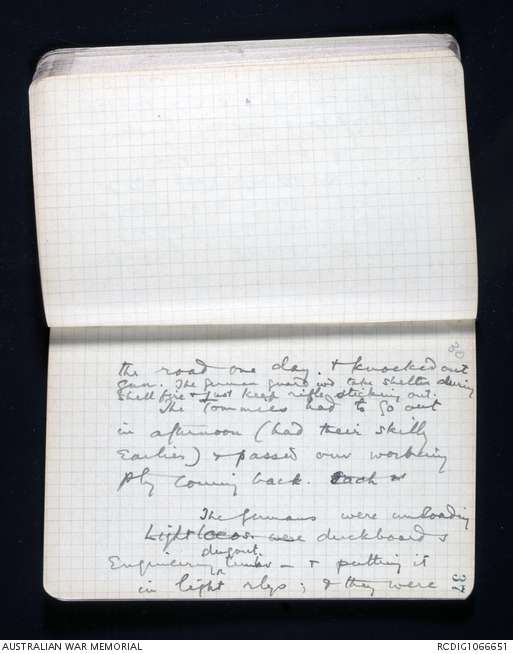 30
the road one day. & knocked out
gun. The German guard wd take shelter during
shell fire & just keep rifles sticking out.
The Tommies had to go out
in afternoon (had their skilly
earlies) & passed our working
pty coming back. Each
The Germans were unloading
Light locos. were duckboards
dugout
Engineering timber — & putting it
in light rlys; & they were
37
AUSTRALIAN WAR MEMORIAL
RCDIG1066651